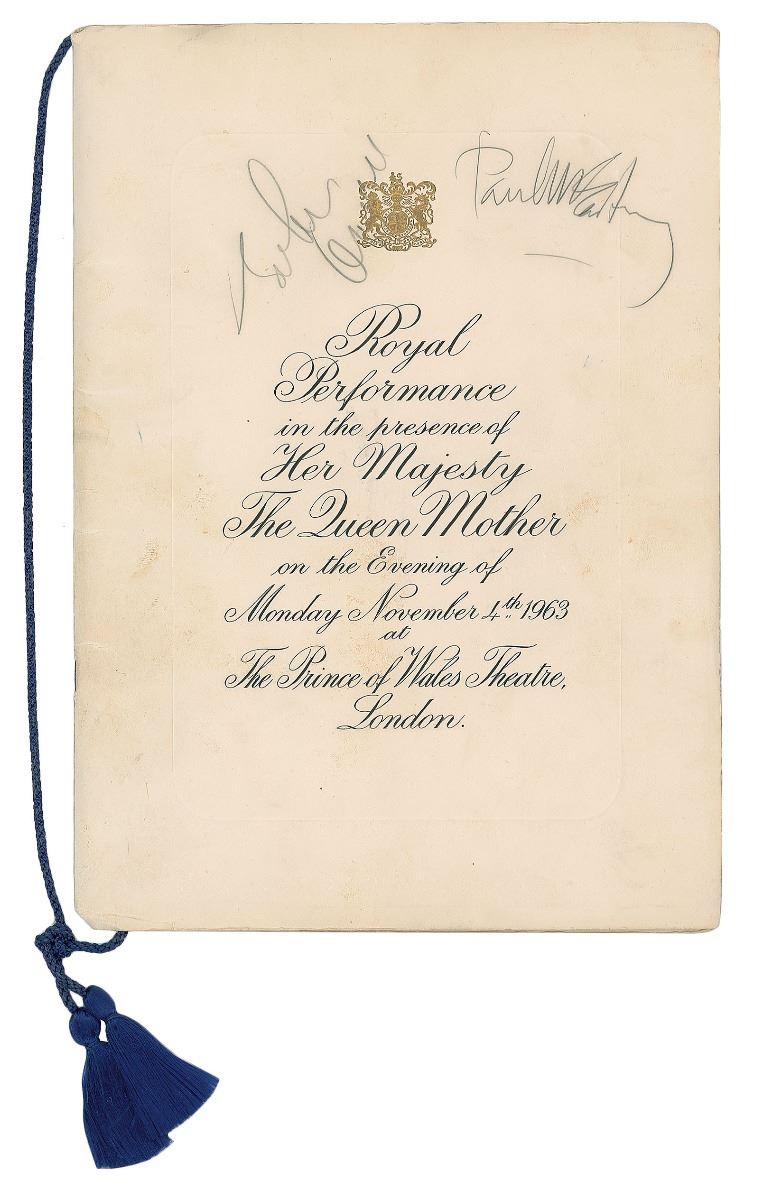 Paul McCartney
Royal
Performance
in the presence of
Her Majesty
The Queen Mother
on the Evening of
Monday November 4th 1963
at
The Prince of Wales Theatre,
London.